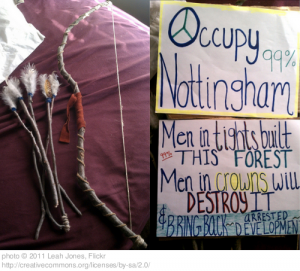 Occupy 99%
Nottingham
Men in tights built
THIS FOREST
Men in crowns will
DESTROY IT
& BRING BACK ARRESTED DEVELOPMENT
photo © 2011 Leah Jones, Flickr
http://creativecommons.org/licenses/by-sa/2.0/